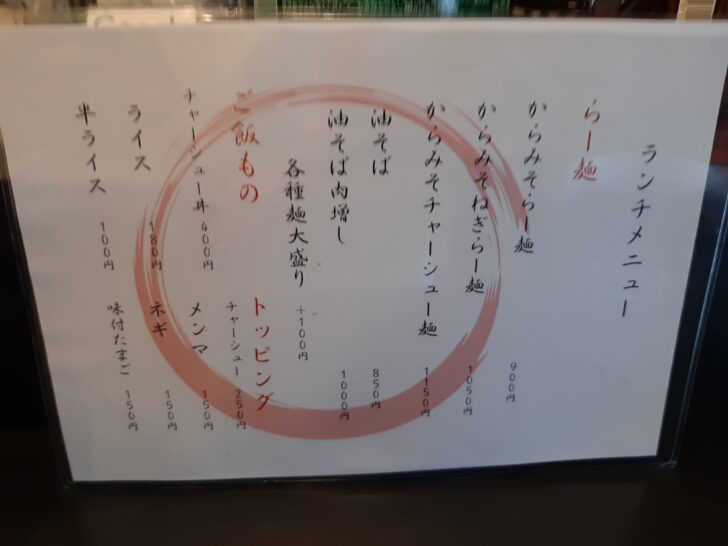 ランチメニュー
らー麺
からみそらー麺 900円
からみそねぎらー麺 1050円
からみそチャーシュー麺 1150円
油そば 850円
油そば肉増し 1000円
各種麺大盛り +100円
ご飯もの
チャーシュー丼 400円
ライス 180円
半ライス 100円
トッピング
チャーシュー 250円
メンマ 150円
ネギ 150円
味付たまご 150円